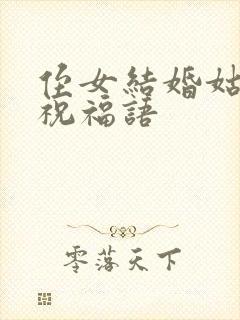 侄女結婚姑
祝福語
零落天下